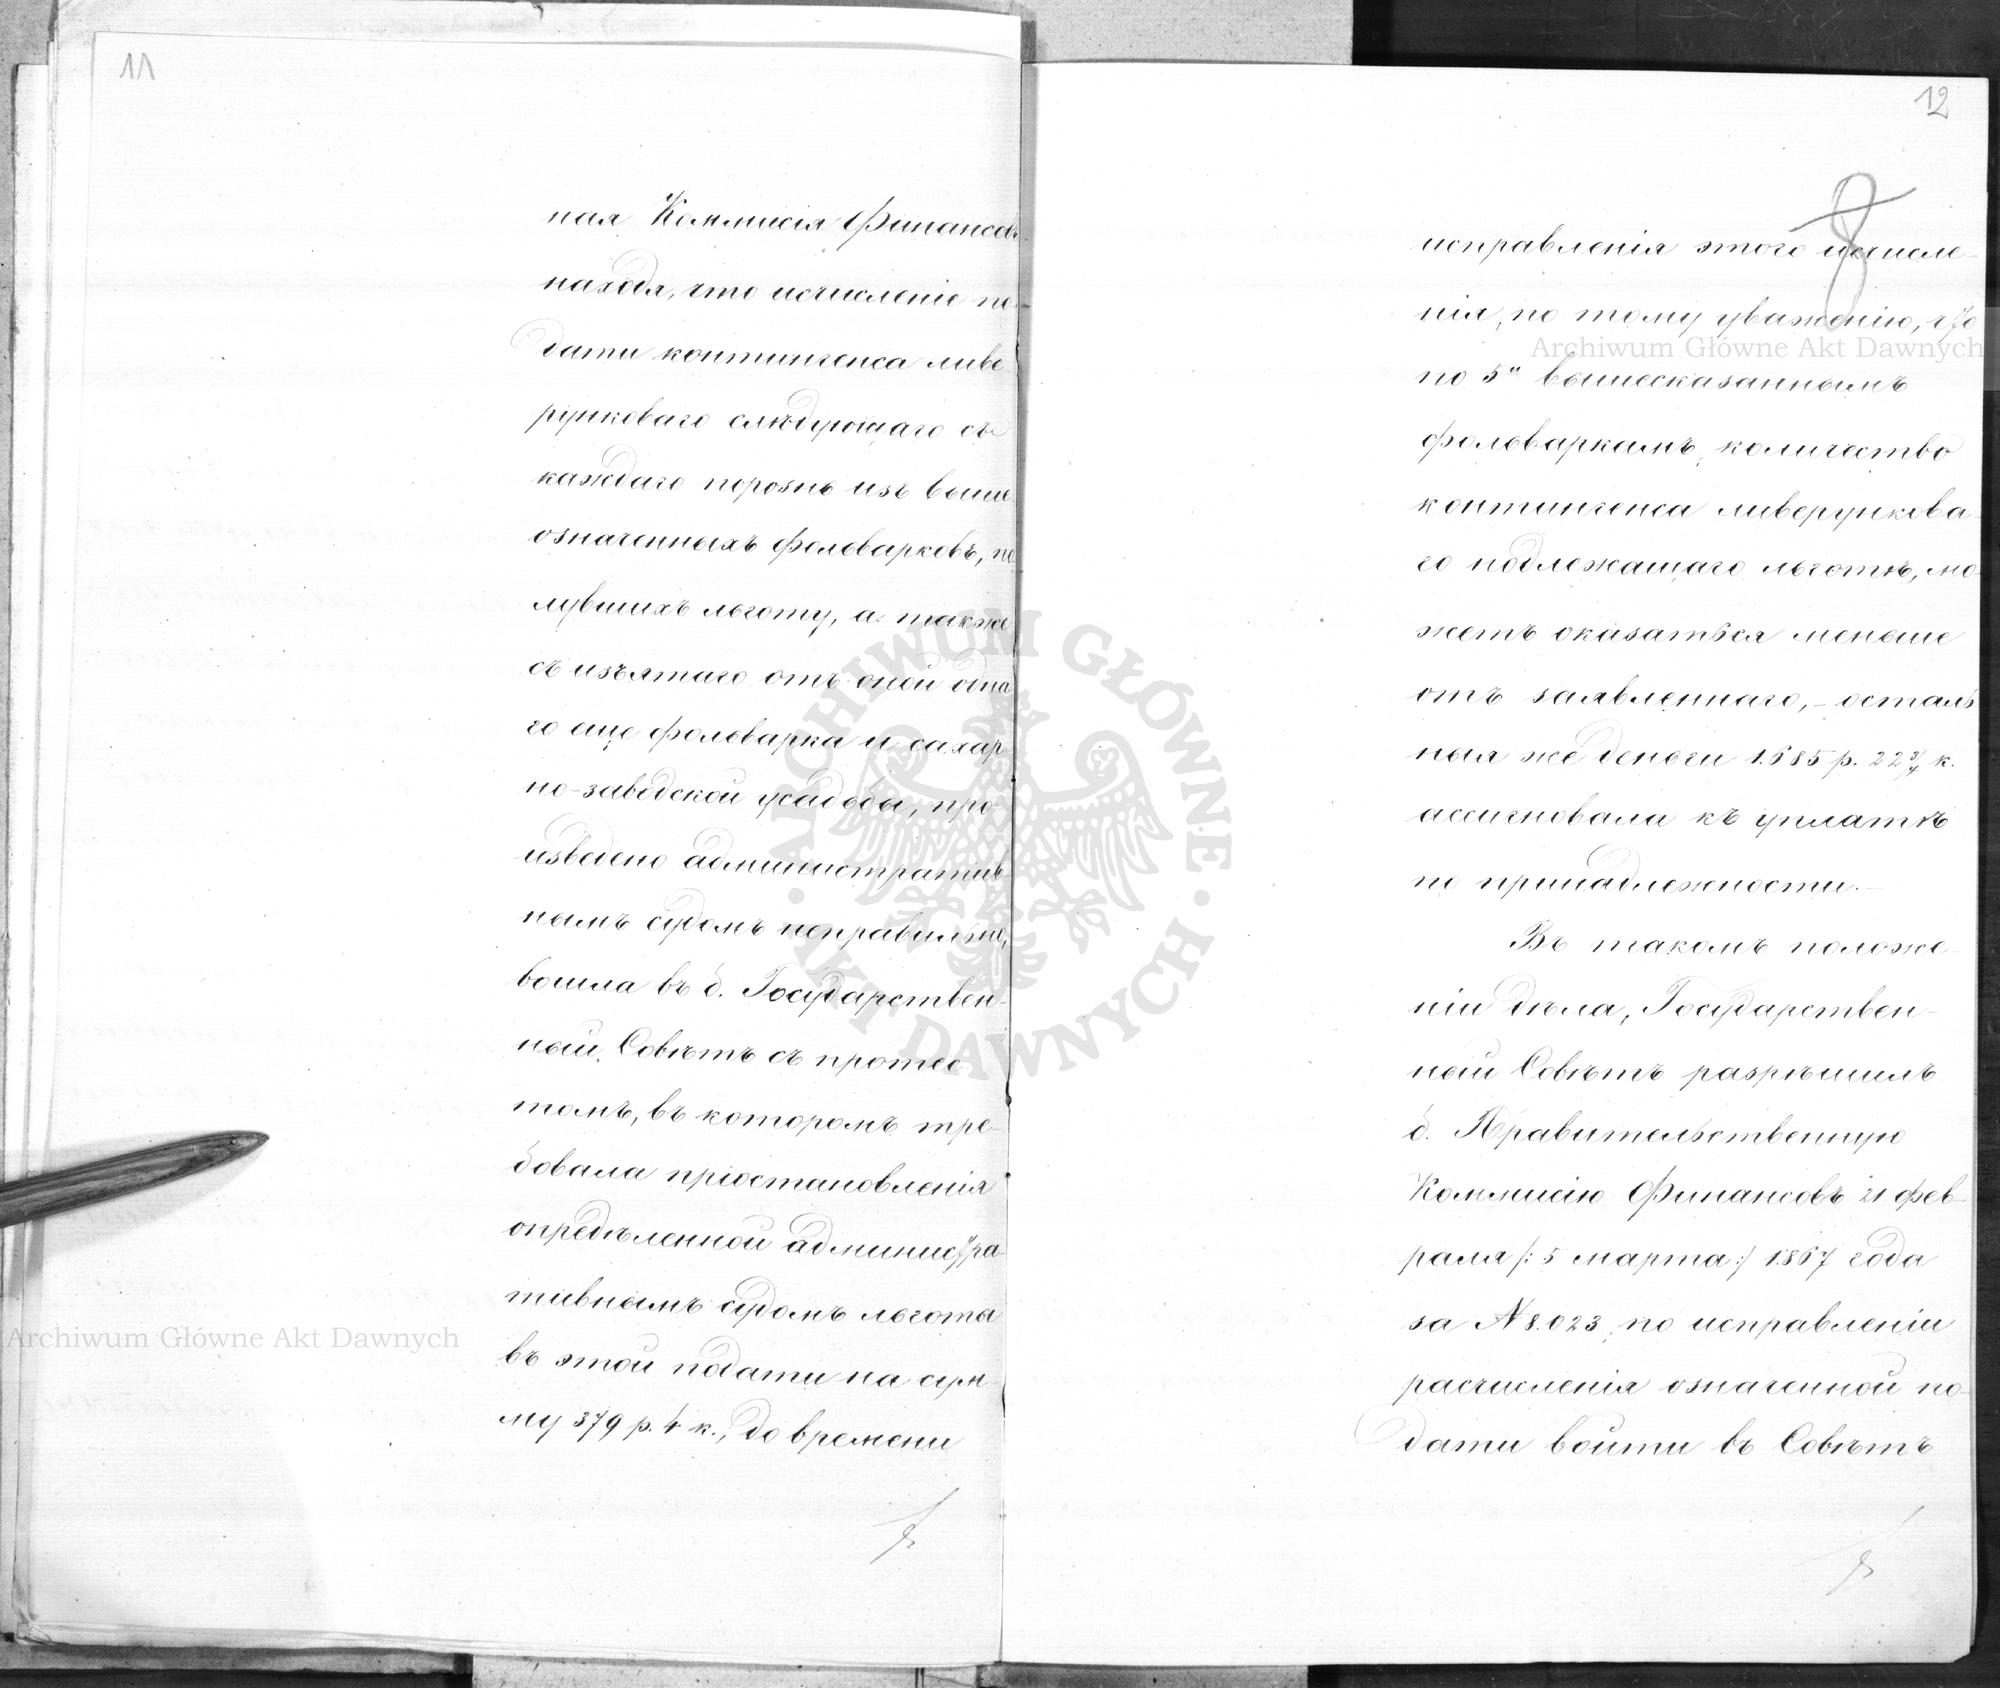 11
ная Коммисія Финансовъ
находя, что исчисленіе по
дати контингенса ливе
рунковаго слѣдующаго съ
каждаго порознь изъ выше
означенныхъ фольварковъ, по
лувшихъ льготу, а также
съ изъятаго отъ оной одна
го еще фольварка и сахар
но-заводской усадьбы, про
изведено административ
нымъ судомъ неправильно,
вошла въ б. Государствен-
ный Совѣтъ съ протес
томъ, въ которомъ тре-
бовала пріостановленія
опредѣленной администра-
тивнымъ судомъ льготы
въ этой подати на сум
му 379 р. 4 к., до времени
12
8
исправленія этого исчисле-
нія, по тому уваженію, что
по 5и вышесказаннымъ
фольваркамъ, количество
контингенса ливерункова
го подлежащаго льготѣ, мо
жетъ оказаться меньше
отъ заявленнаго, – осталь
ныя же деньги 1.685 р. 22 3/4 к.
ассигновала къ уплатѣ
по принадлежности. –
Въ такомъ положе-
ніи дѣла, Государствен-
ный Совѣтъ разрѣшилъ
б. Правительственную
Коммисію Финансовъ 21 фев-
раля /: 5 марта :/ 1867 года
за № 8.023, по исправленіи
расчисленія означенной по-
дати войти въ Совѣтъ
Archiwum Główne Akt Dawnych
Archiwum Główne Akt Dawnych
ARCHIWUM GŁÓWNE · AKT DAWNYCH ·